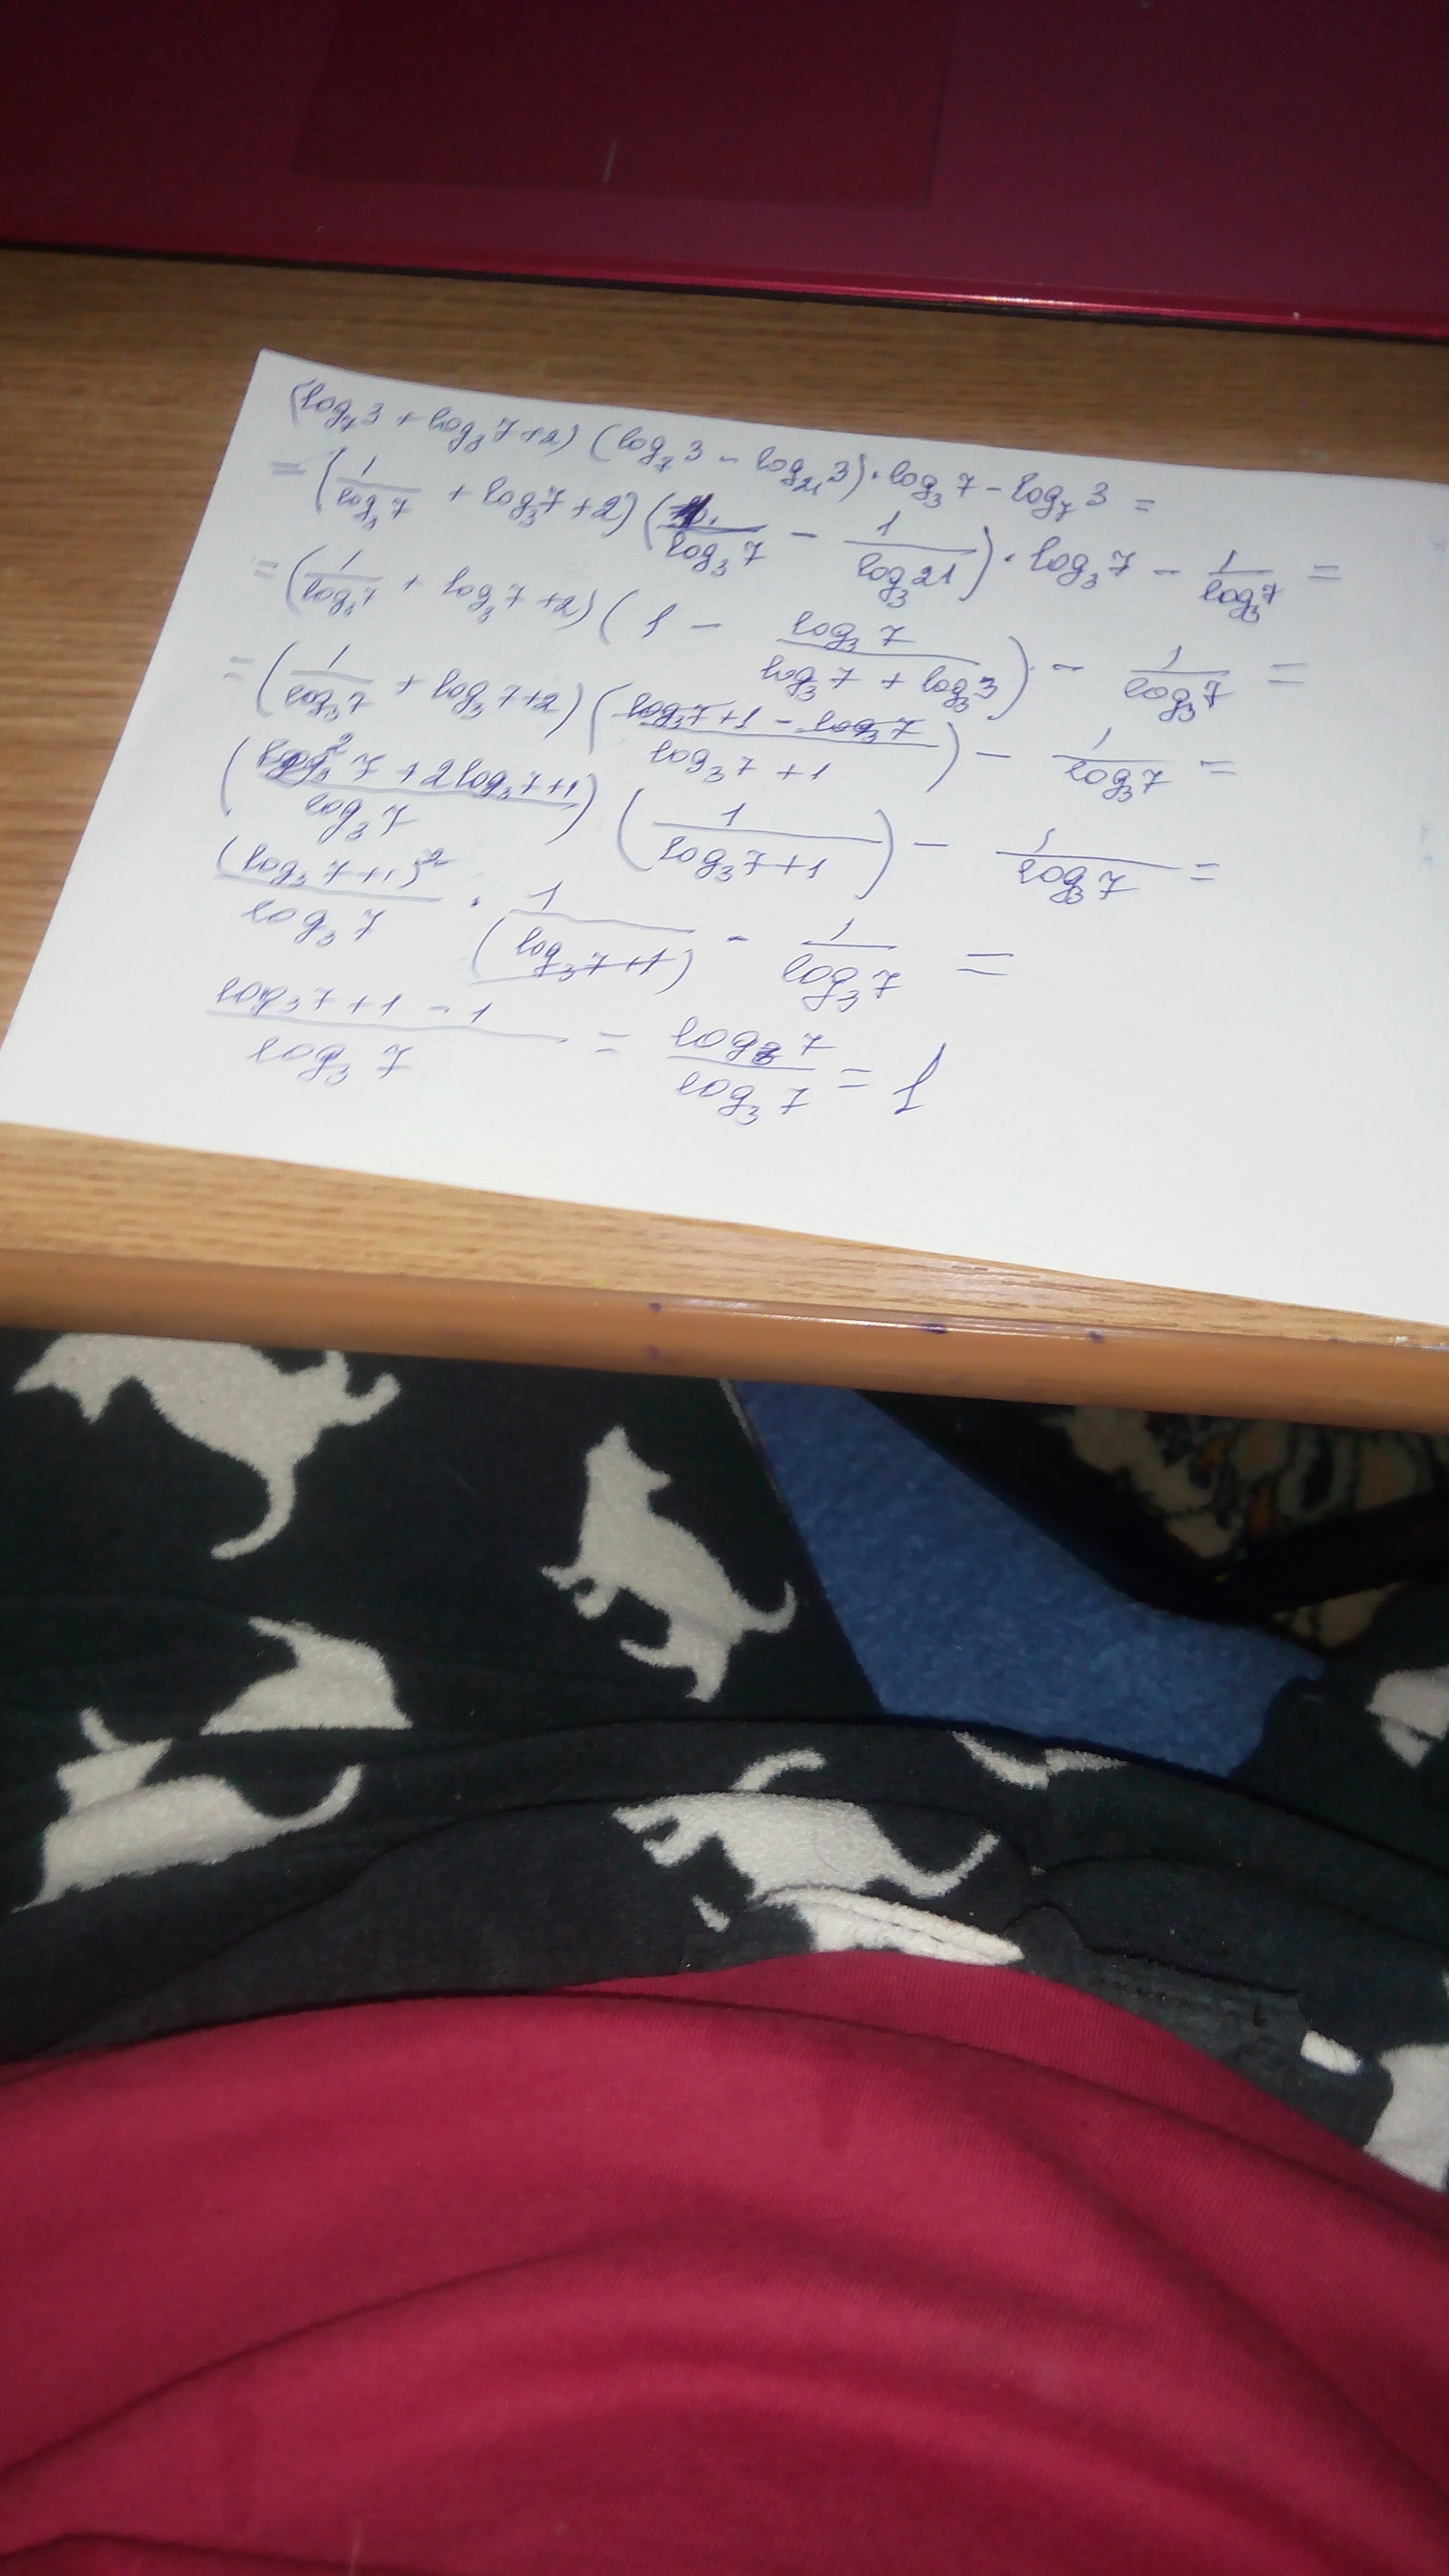 (log₇3 + log₃7+2) (log₇3 - log₂₁3)·log₃7 - log₇3 =
= (1/log₃7 + log₃7+2) (1/log₃7 - 1/log₃21)·log₃7 - 1/log₃7 =
= (1/log₃7 + log₃7+2) (1 - log₃7/(log₃7 + log₃3)) - 1/log₃7 =
= (1/log₃7 + log₃7+2) ((log₃7+1 - log₃7)/(log₃7+1)) - 1/log₃7 =
((log₃²7 + 2log₃7+1)/log₃7) (1/(log₃7+1)) - 1/log₃7 =
(log₃7+1)²/log₃7 · 1/(log₃7+1) - 1/log₃7 =
(log₃7+1-1)/log₃7 = log₃7/log₃7 = 1